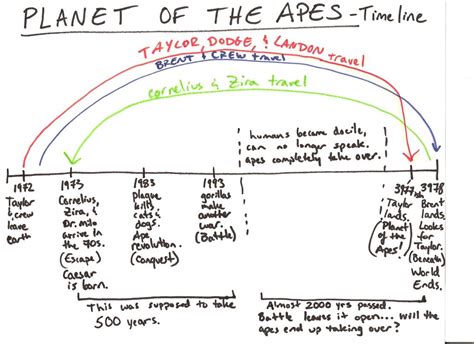 PLANET OF THE APES - Timeline
TAYLOR, DODGE, & LANDON travel
BRENT & CREW travel
Cornelius & Zira travel
humans became docile,
can no longer speak.
apes completely take over.
1972
Taylor
& crew
leave
earth
1973
Cornelius,
Zira, &
Dr. Milo
arrive in
the 70s.
(Escape)
Caesar
is born.
1983
plague
kills
cats &
dogs.
Ape
revolution.
(Conquest)
1993
gorillas
make
another
war.
(Battle)
3977
Taylor
lands.
(Planet
of the
Apes!)
3978
Brent
lands.
Looks
for
Taylor.
(Beneath)
World
Ends.
This was supposed to take
500 years.
Almost 2000 yrs passed.
Battle leaves it open... will the
apes end up taking over?